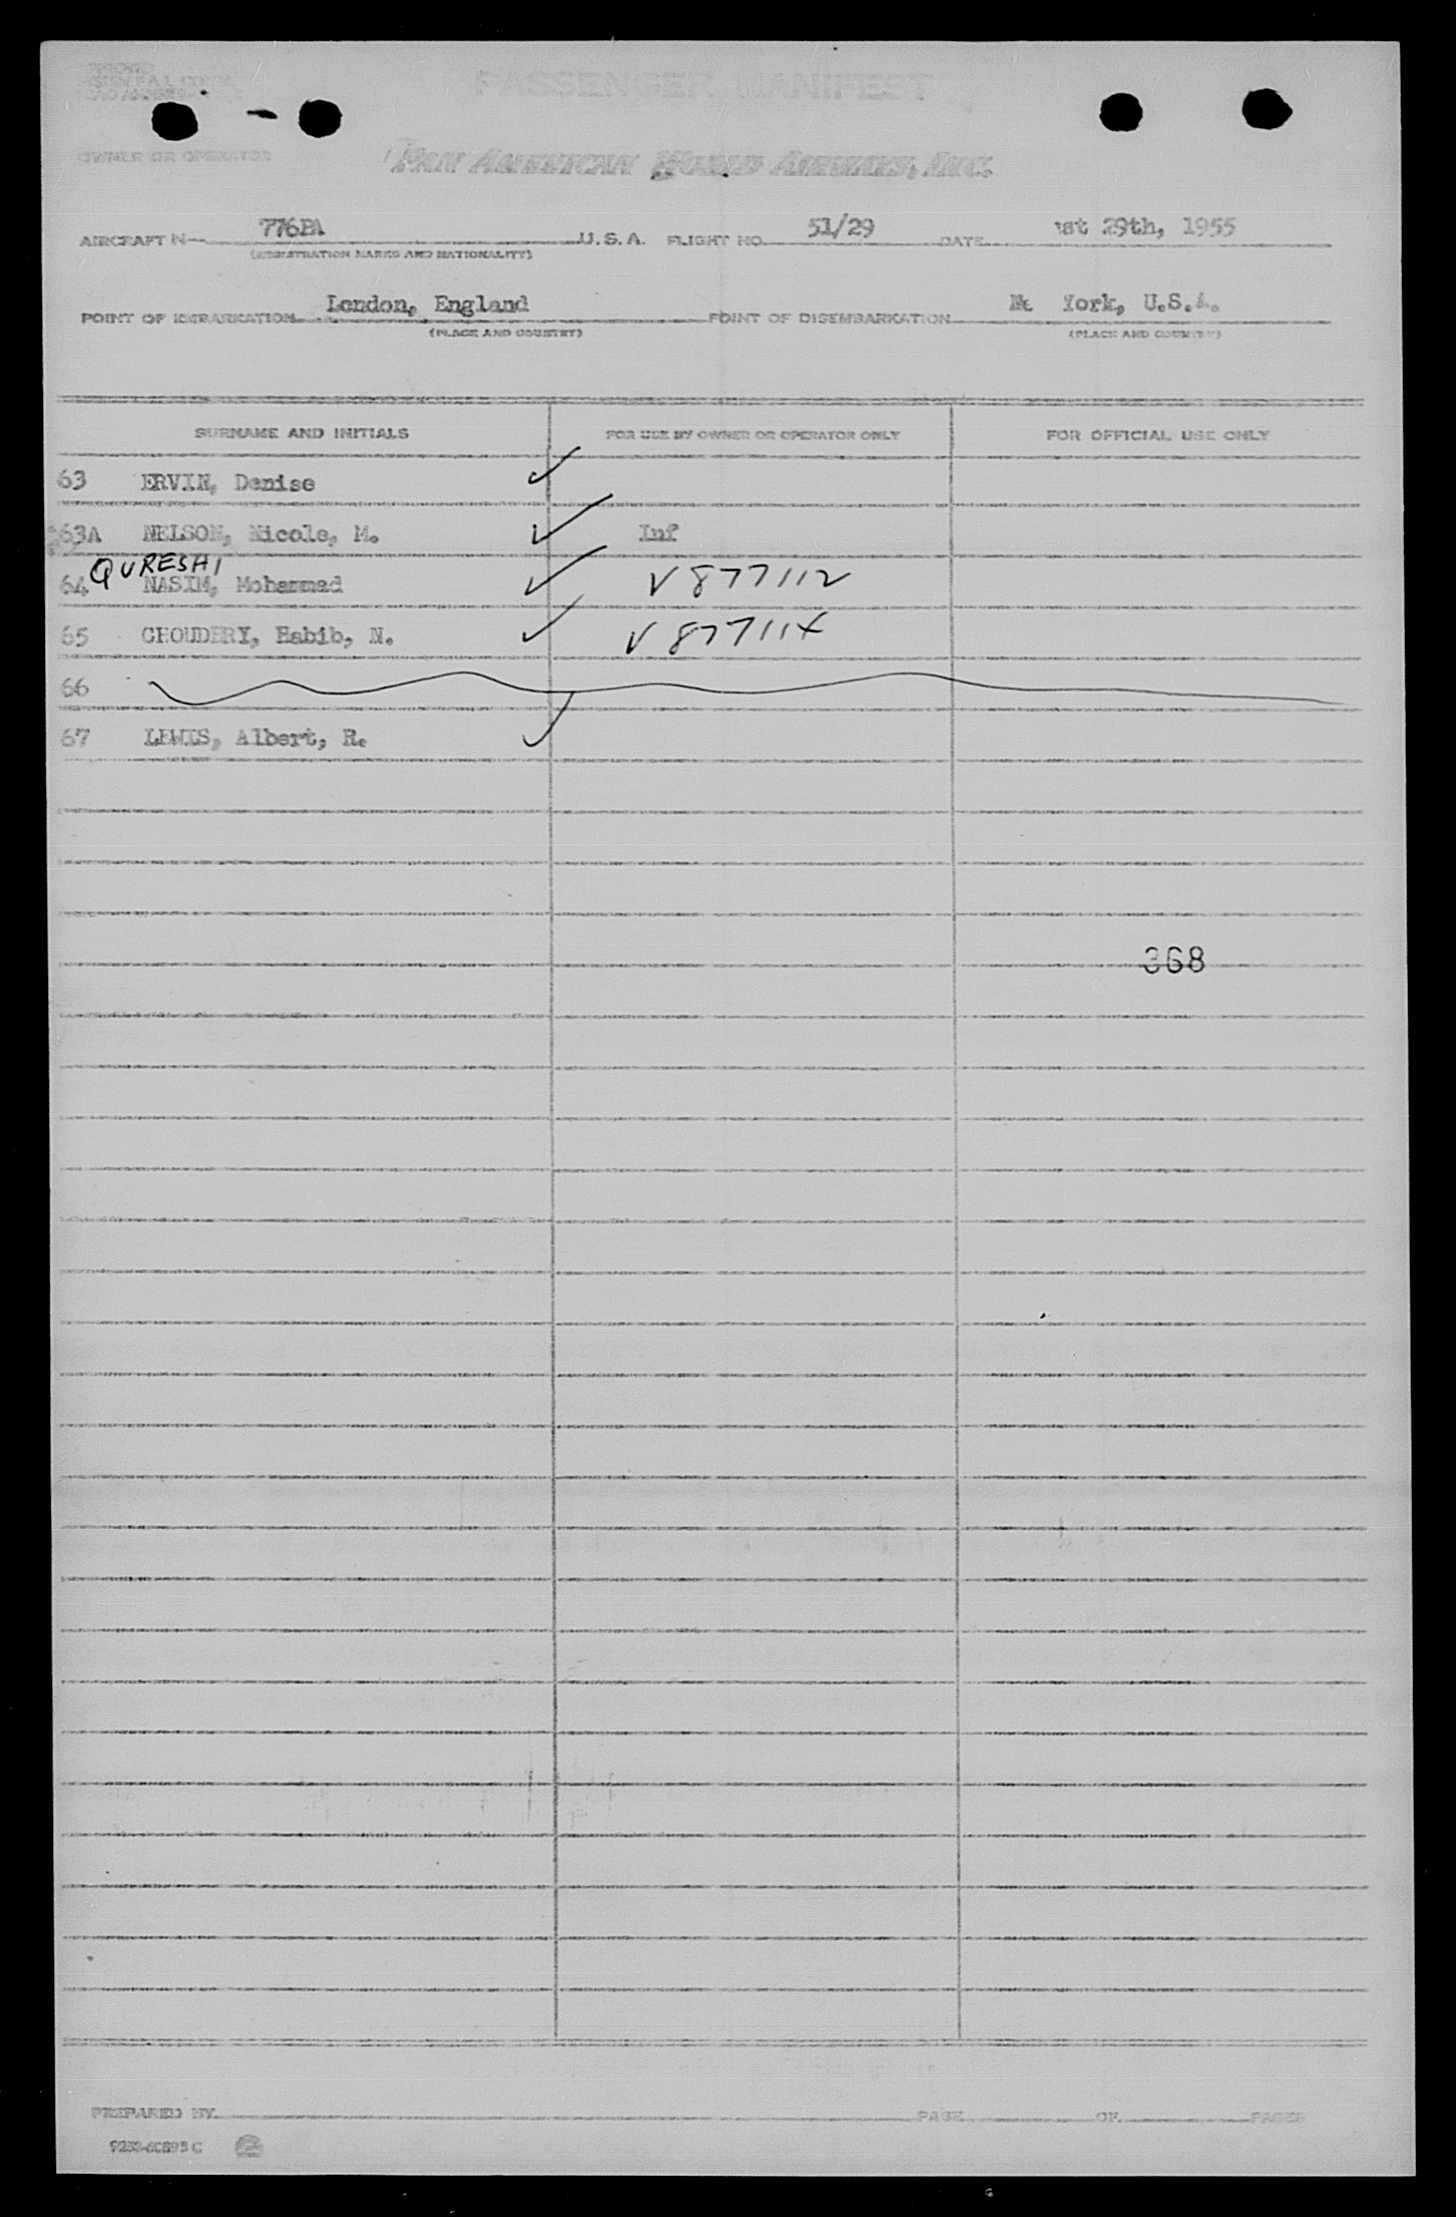 PASSENGER MANIFEST
OWNER OR OPERATOR PAN AMERICAN WORLD AIRWAYS, INC.
AIRCRAFT N- 776PA U.S.A. FLIGHT NO. 51/29 DATE ust 29th, 1955
(REGISTRATION MARKS AND NATIONALITY)
POINT OF EMBARKATION London, England POINT OF DISEMBARKATION Ne York, U.S.A.
(PLACE AND COUNTRY) (PLACE AND COUNTRY)
SURNAME AND INITIALS FOR USE BY OWNER OR OPERATOR ONLY FOR OFFICIAL USE ONLY
63 ERVIN, Denise ✓
63A NELSON, Nicole, M. ✓ Inf
QURESHI
64 NASIM, Mohammad ✓ V 877112
65 CHOUDERY, Habib, N. ✓ V 877114
66
67 LEWIS, Albert, R. ✓
368
PREPARED BY PAGE OF PAGES